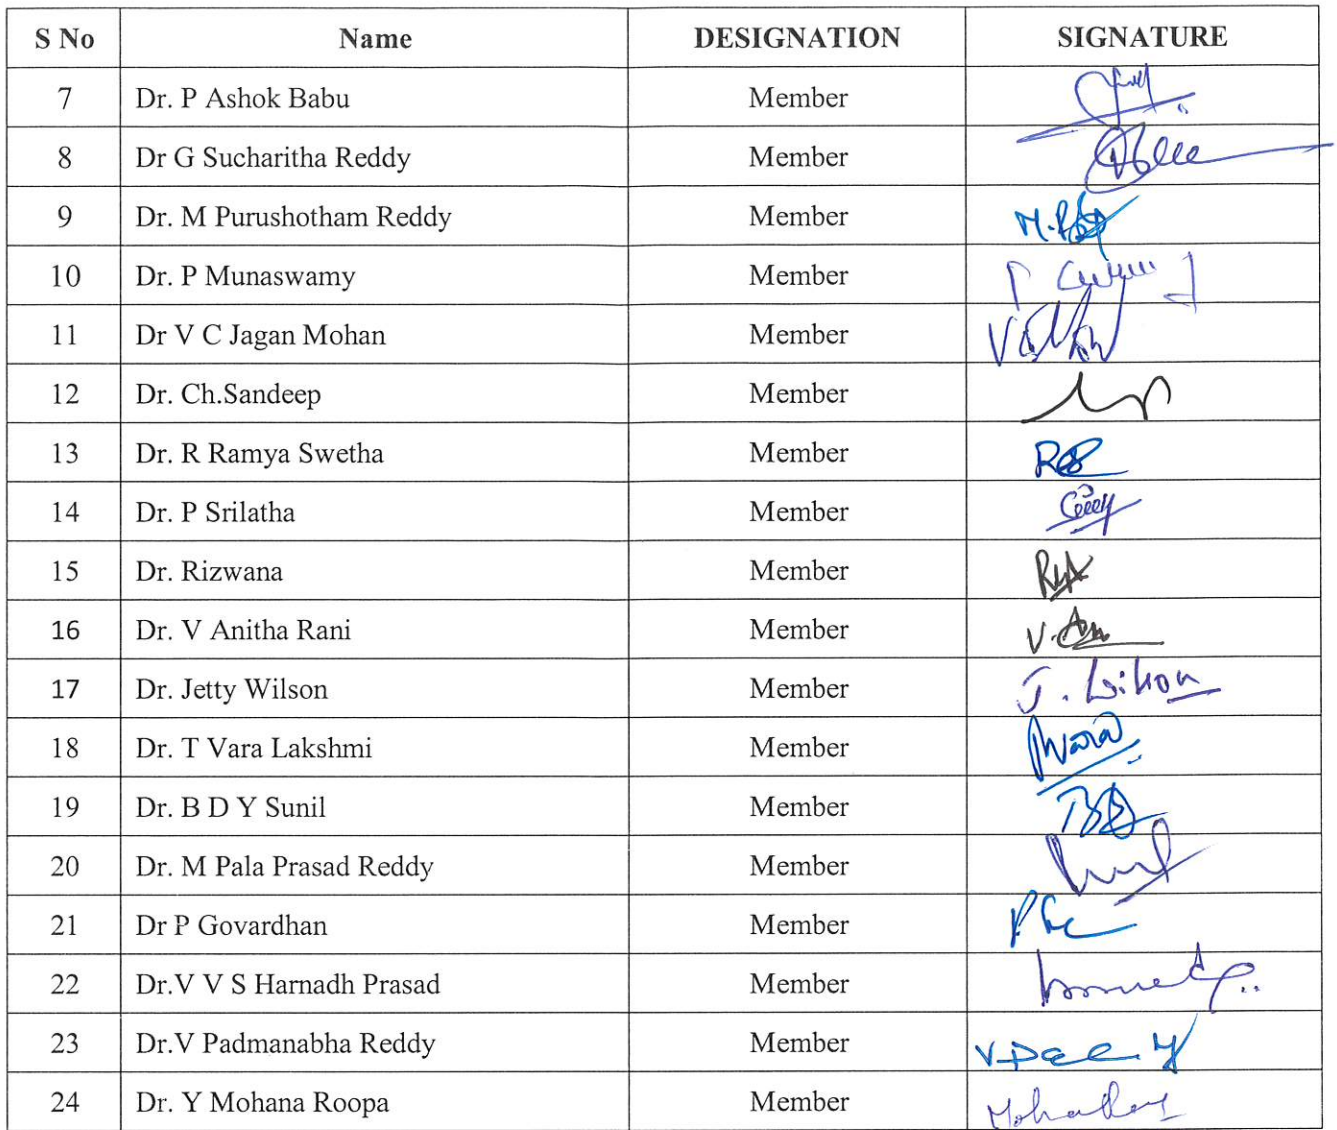 S No Name DESIGNATION SIGNATURE
7 Dr. P Ashok Babu Member
8 Dr G Sucharitha Reddy Member
9 Dr. M Purushotham Reddy Member
10 Dr. P Munaswamy Member
11 Dr V C Jagan Mohan Member
12 Dr. Ch.Sandeep Member
13 Dr. R Ramya Swetha Member
14 Dr. P Srilatha Member
15 Dr. Rizwana Member
16 Dr. V Anitha Rani Member
17 Dr. Jetty Wilson Member J. Wilson
18 Dr. T Vara Lakshmi Member
19 Dr. B D Y Sunil Member
20 Dr. M Pala Prasad Reddy Member
21 Dr P Govardhan Member
22 Dr.V V S Harnadh Prasad Member
23 Dr.V Padmanabha Reddy Member
24 Dr. Y Mohana Roopa Member